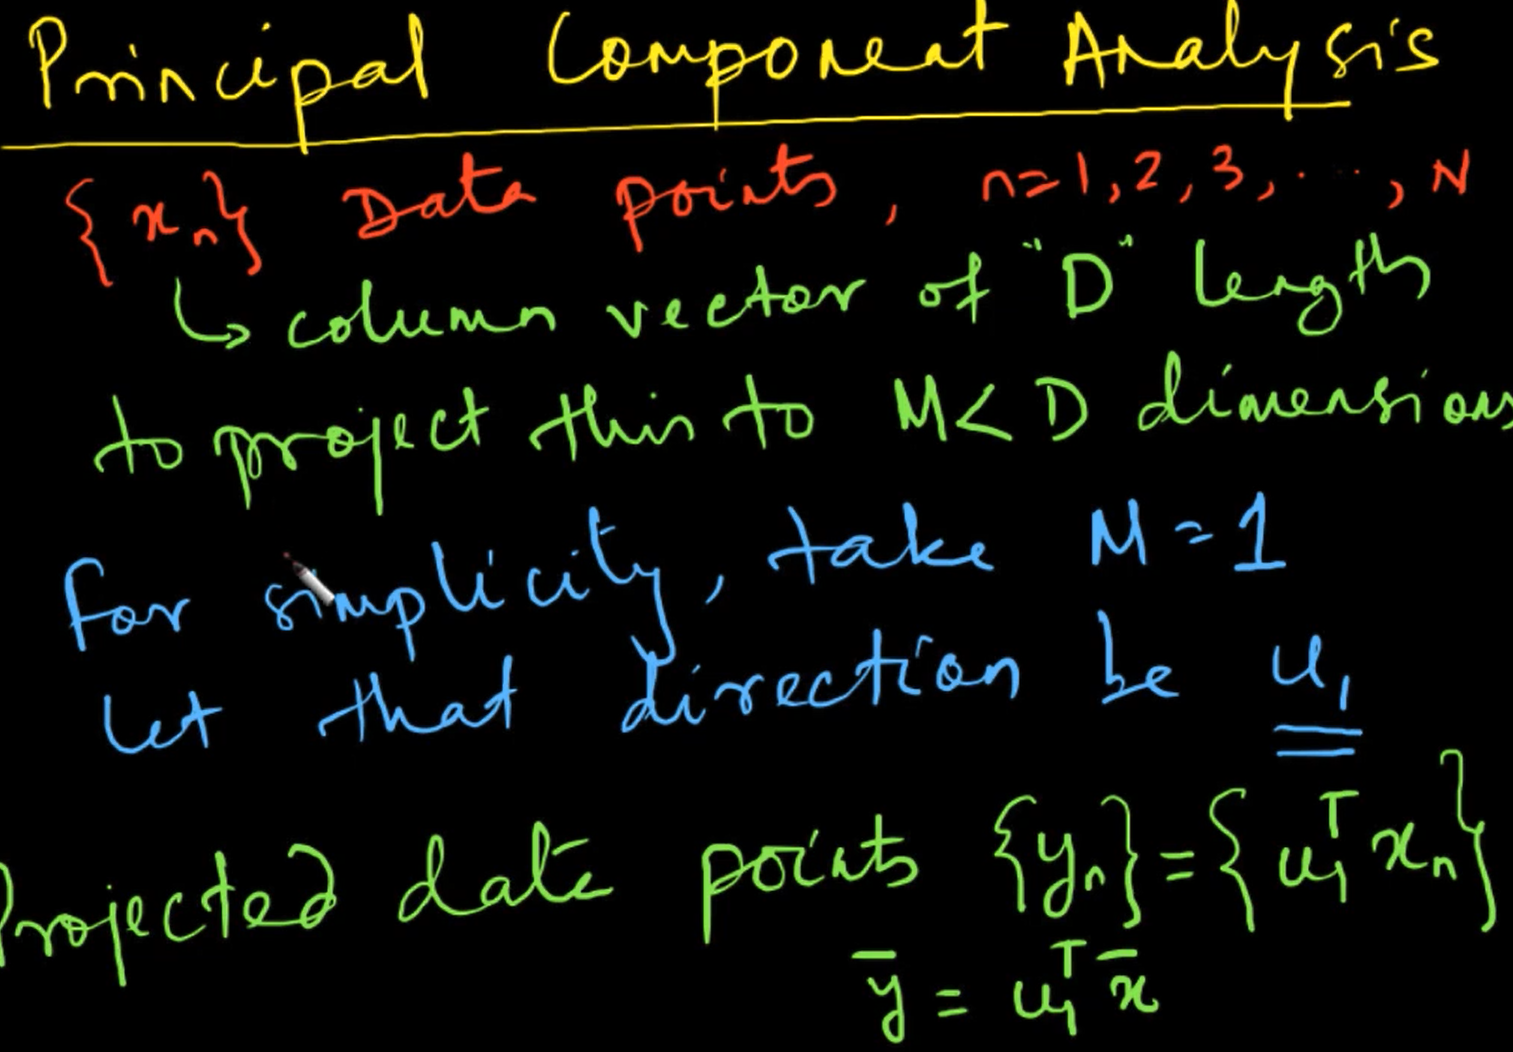 Principal Component Analysis
{xₙ} Data points, n=1,2,3,...,N
↳ column vector of "D" length
to project this to M<D dimensions
for simplicity, take M=1
let that direction be u₁
Projected data points {yₙ}={u₁ᵀxₙ}
ȳ = u₁ᵀx̄